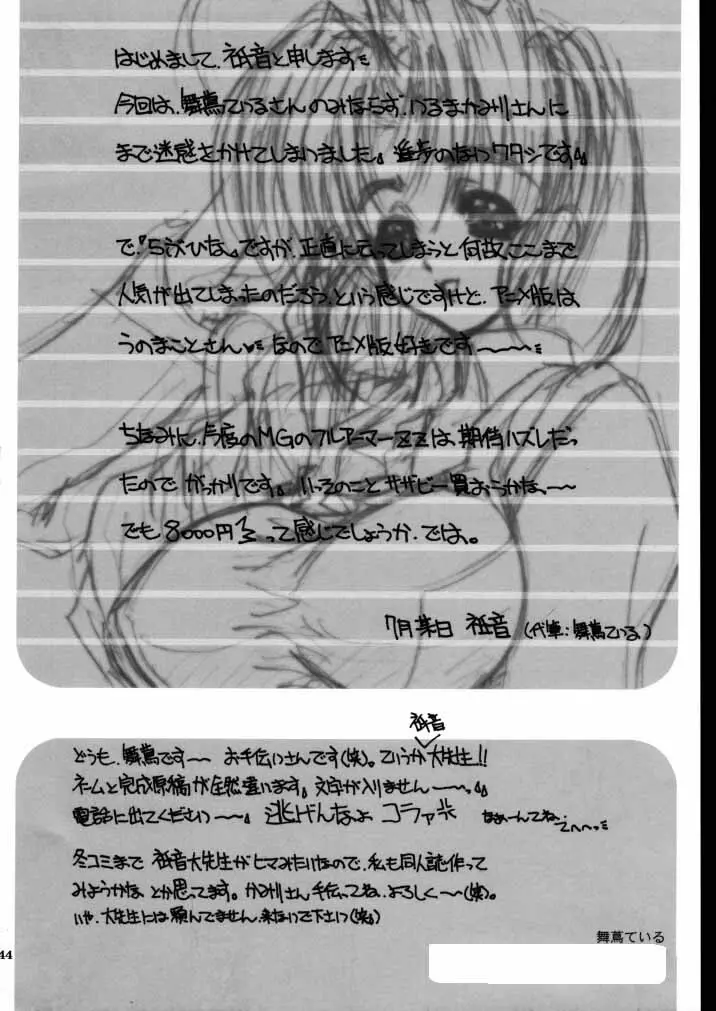 はじめまして、祇音と申します
今回は、舞蔦ているさんのみならず、かるまかみ川さんに
まで迷惑をかけてしまいました。進歩のないワタシです
で『らぶひな』ですが、正直に云ってしまうと何故、ここまで
人気が出てしまったのだろう、という感じですけど、アニメ版は
うのまことさん なのでアニメ版好きです〜〜〜
ちなみに、今度のMGのフルアーマーZZは、期待ハズレだっ
たのでがっかりです。いっそのことサザビー買おうかな、〜〜
でも8000円って感じでしょうか、では。
7月某日 祇音 (代筆:舞蔦ている)
祇音
どうも、舞蔦です〜〜 お手伝いさんです(笑)。ていうか大先生!!
ネームと完成原稿が全然違います。文字が入りません〜〜。
電話に出てください〜〜。逃げんなよ コラァ なぁーんてね、
てへへっ
冬コミまで 祇音大先生がヒマみたいなので、私も同人誌作って
みようかな、とか思ってます。かみ川さん手伝ってね、よろしく〜〜(笑)。
いや、大先生には頼んでません、来ないで下さいっ(笑)
舞蔦ている
44